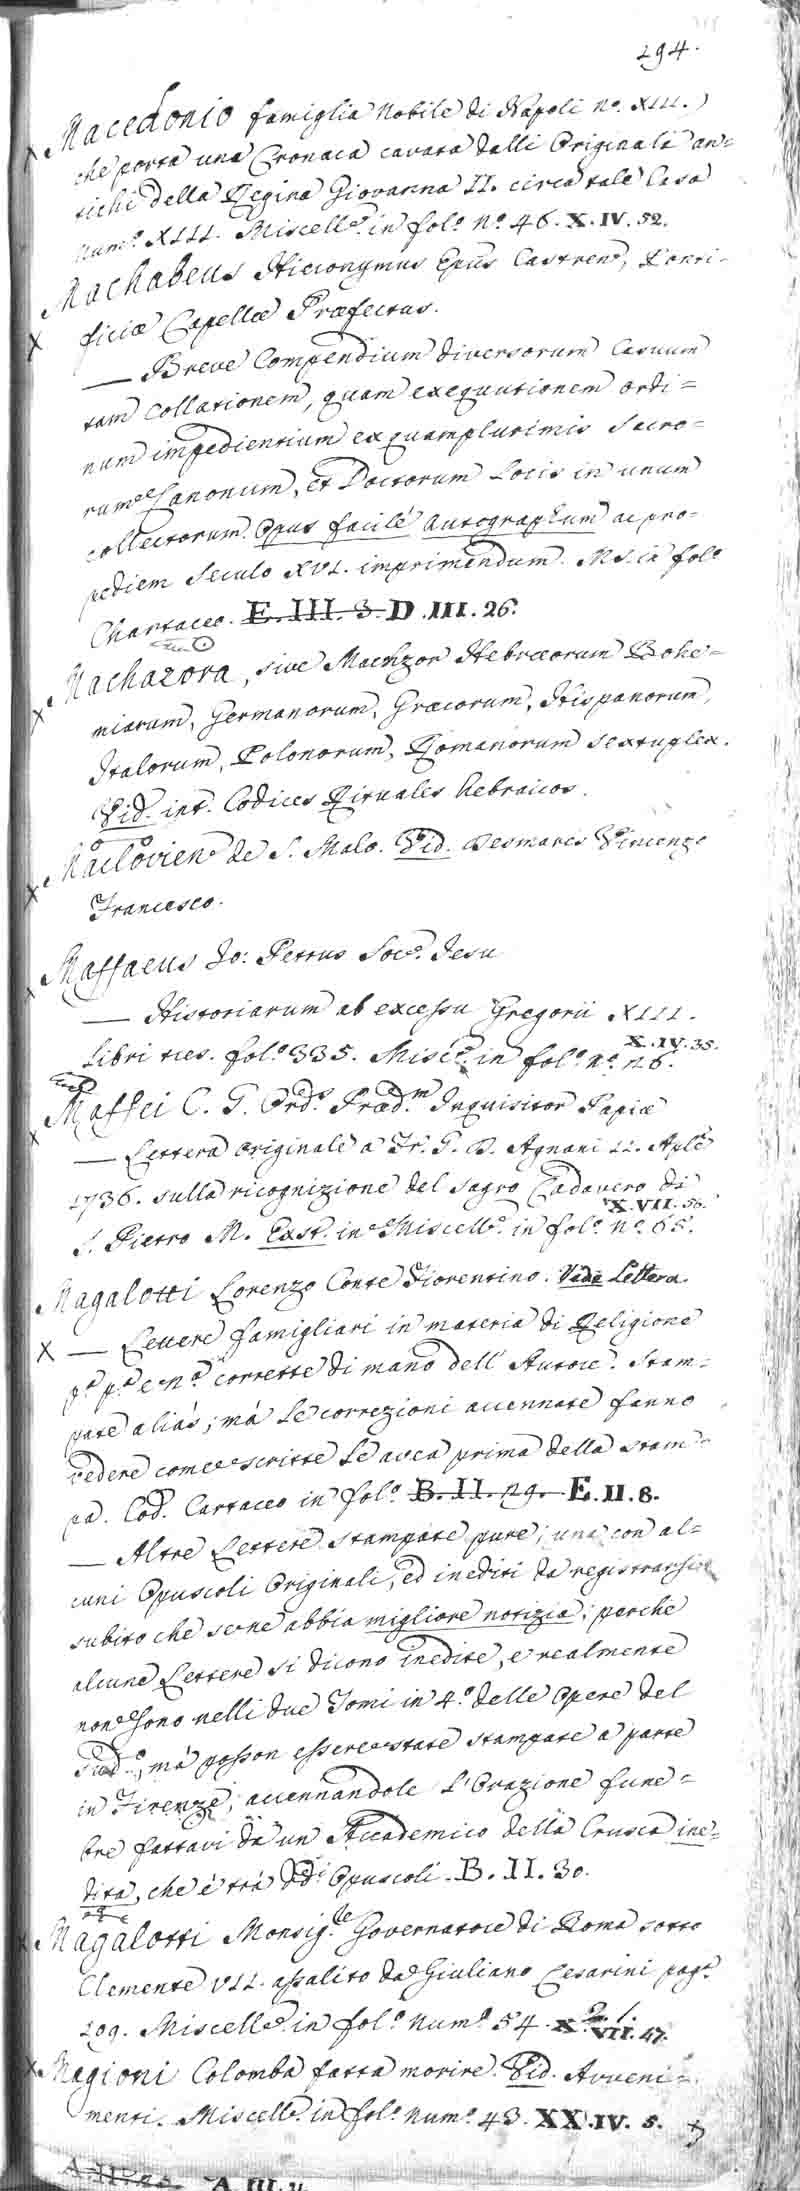 294.
Macedonio famiglia Nobile di Napoli nº. XIII.
che porta una Cronaca cavata dalli Originali an=
tichi della Regina Giovanna II. circa tale Casa
Numº. XIII. Miscellº. in folº. nº. 46. X. IV. 52.
Machabeus Hieronymus Epus Castrenº, Ponti-
ficiæ Capellæ Præfectus.
— Breve Compendium diversorum Casuum
tam Collationem, quam exequutionem ordi=
num impedientium ex quamplurimis Sacro=
rum Canonum, et Doctorum Locis in unum
collectorum. Opus facilé autographum ac pro-
pediem Seculo XVI. imprimendum. Ms. in folº
Chartaceo. E. III. 3. D. III. 26.
Machazora, sive Machzor Hebræorum Bohe=
miarum, Germanorum, Græcorum, Hispanorum,
Italorum, Polonorum, Romanorum sextuplex.
Vid. int. Codices Rituales hebraicos.
Maclovienº de S. Malo. Vid. Desmares Vincenzo
Francesco.
Maffaeus Jo: Petrus Socº. Jesu
— Historiarum ab excessu Gregorii XIII.
X. IV. 35.
Libri tres. folº. 335. Miscº. in folº. nº. 26.
Maffei C. T. Ordº. Prædm. Inquisitor Papiæ
— Lettera originale a Fr. T. B. Agnani 12. Aple
1736. sulla ricognizione del sagro Cadavero di
X. VII. 56.
S. Pietro M. Exst. in Miscellº. in folº. nº. 65.
Magalotti Lorenzo Conte Fiorentino. Vede Lettera.
— Lettere famigliari in materia di Religione
pº. pº. e 2º. corrette di mano dell' Autore. Stam=
pate aliàs; mà le correzioni accennate fanno
vedere come scritte le avea prima della stam=
pa. Cod. Cartaceo in folº. B. II. 29. E. II. 8.
— Altre Lettere stampate pure; una con al=
cuni Opuscoli Originali, ed inediti da registrarsi
subito che se ne abbia migliore notizia; perche
alcune Lettere si dicono inedite, e realmente
non sono nelli due Tomi in 4º. delle Opere del
Sudº, mà posson essere state stampate a parte
in Firenze; accennandole l'Orazione fune=
bre fattavi da un Accademico della Crusca ine=
dita, che é trà ddi Opuscoli. B. II. 30.
Magalotti Monsig.le Governatore di Roma sotto
Clemente VII. assalito da Giuliano Cesarini pagª.
209. Miscellº. in folº. numº. 54. X. VII. 47.
Magioni Colomba fatta morire. Vid. Avveni=
menti. Miscellº. in folº. numº. 43. XX. IV. 5.
A. III.